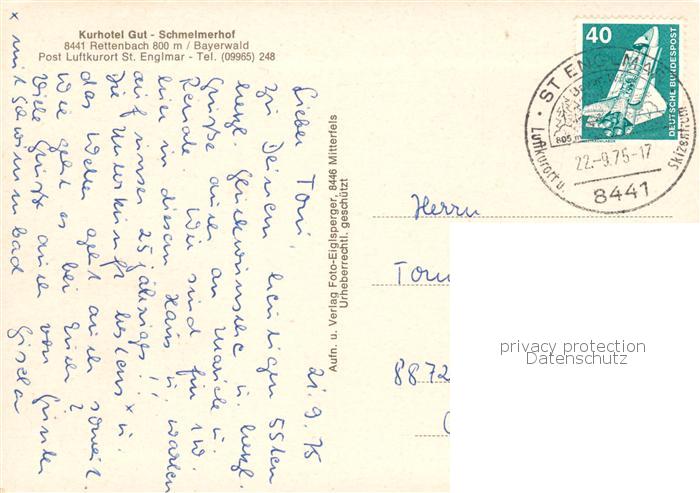 Kurhotel Gut - Schmelmerhof
8441 Rettenbach 800 m / Bayerwald
Post Luftkurort St. Englmar - Tel. (09965) 248
21.9.75
Lieber Toni,
zu Deinem heutigen 55ten
herzl. Glückwünsche u. herzl.
Grüße auch an
Renate. Wir sind für 1 W.
hier in diesem Haus u. warten
auf unser 25 jähriges!
Die Unterkunft bestens x u.
das Wetter geht auch soweit.
Wie geht es bei Euch?
Viele Grüße auch von Günter
Gischa
x mit Schwimmbad
Aufn. u. Verlag Foto-Eiglsperger, 8446 Mitterfels
Urheberrechtl. geschützt
40
DEUTSCHE BUNDESPOST
ST ENGLMA
805 m
22.-9.75-17
8441
Luftkurort u.
Skizentrum
Herrn
Toni
8872
privacy protection
Datenschutz